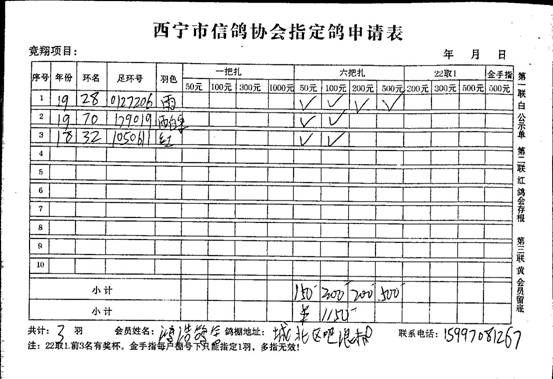 西宁市信鸽协会指定鸽申请表
竞翔项目： 年 月 日
序号 年份 环名 足环号 羽色 一把扎 六把扎 22取1 金手指
50元 100元 300元 1000元 50元 100元 200元 500元 200元 500元 500元
1 19 28 0127206 雨 ✓ ✓ ✓ ✓
2 19 70 179019 雨白条 ✓ ✓
3 18 32 105061 红 ✓ ✓
4
5
6
7
8
9
10
小计 150 300 200 500
小计 1150
共计：3羽 会员姓名： 鸽棚地址：城北区吧浪村 联系电话：15997081267
注：22取1.前3名有奖杯，金手指每户棚号下只能指定1羽，多指无效！
第一联 白 公示单 第二联 红 鸽会存根 第三联 黄 会员留底